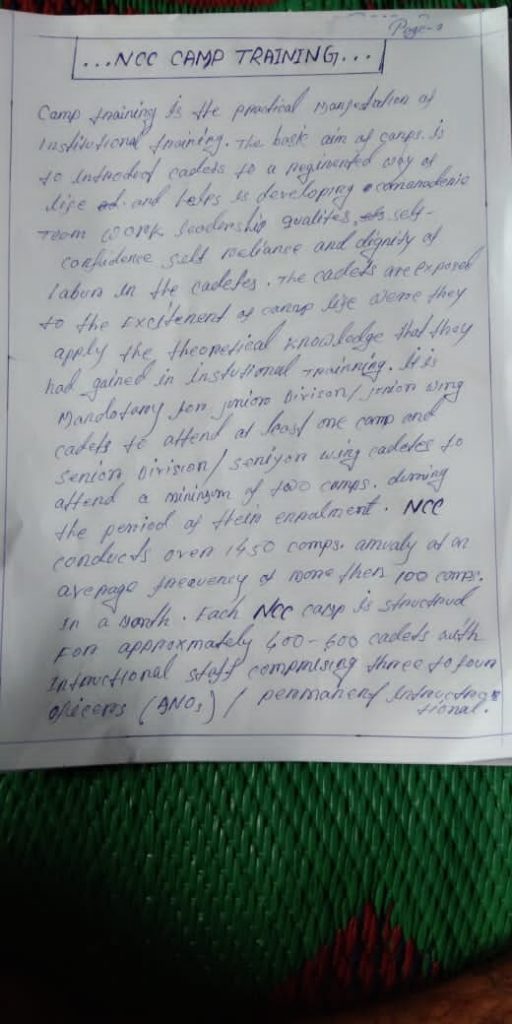 Page-2
...NCC CAMP TRAINING...
Camp training is the practical manfestation of
Institutional training. The basic aim of camps. is
to introduced cadets to a regimented way of
life and helps is developing comaraderie
Team work leadership qualites, self-
confidence self reliance and dignity of
labour in the cadetes. The cadets are exposed
to the excitement of camp life were they
apply the theoretical knowledge that they
had gained in instutional trainning. It is
Mandotary for junior Divison/junior wing
cadets to attend at least one camp and
senior Division/seniyor wing cadetes to
attend a minimum of two camps. during
the period of their enrolment. NCC
conducts over 1450 comps. annualy at an
average frequency of more then 100 comps.
in a month. Each NCC camp is structrud
For approxmately 400-600 cadets with
Intructional staff comprising three to four
oficers (ANOs) / permanent intructional.